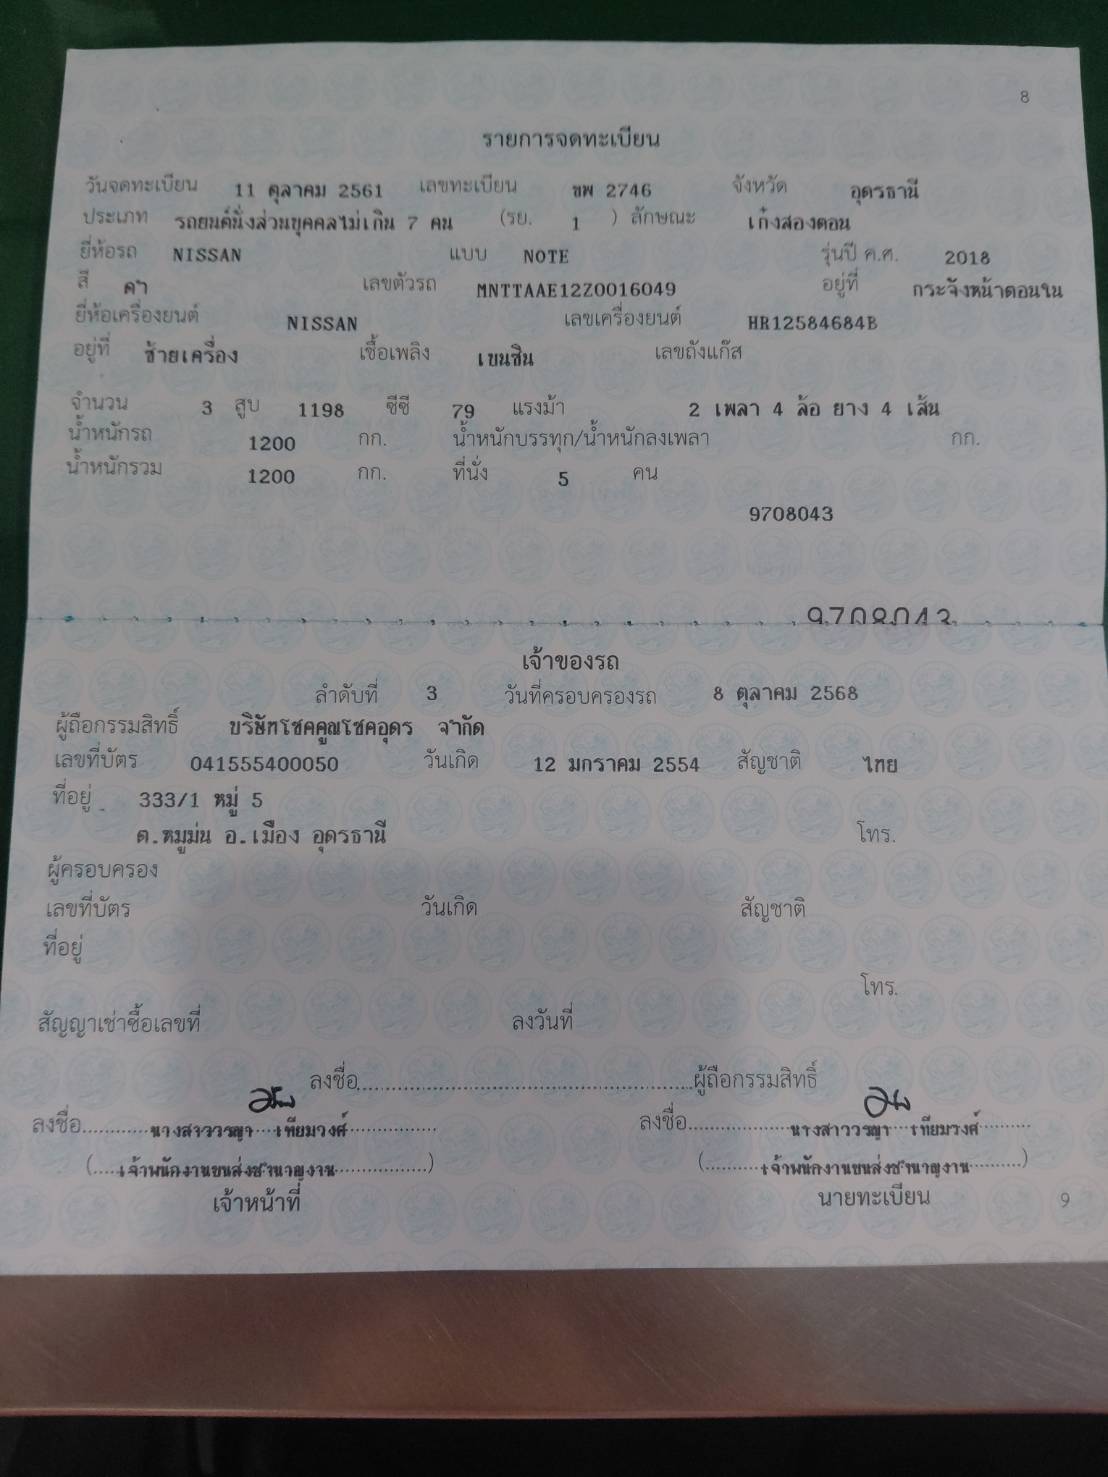 8
รายการจดทะเบียน
วันจดทะเบียน 11 ตุลาคม 2561 เลขทะเบียน ขพ 2746 จังหวัด อุดรธานี
ประเภท รถยนต์นั่งส่วนบุคคลไม่เกิน 7 คน (รย. 1 ) ลักษณะ เก๋งสองตอน
ยี่ห้อรถ NISSAN แบบ NOTE รุ่นปี ค.ศ. 2018
สี ดำ เลขตัวรถ MNTTAAE12Z0016049 อยู่ที่ กระจังหน้าตอนใน
ยี่ห้อเครื่องยนต์ NISSAN เลขเครื่องยนต์ HR12584684B
อยู่ที่ ซ้ายเครื่อง เชื้อเพลิง เบนซิน เลขถังแก๊ส
จำนวน 3 สูบ 1198 ซีซี 79 แรงม้า 2 เพลา 4 ล้อ ยาง 4 เส้น
น้ำหนักรถ 1200 กก. น้ำหนักบรรทุก/น้ำหนักลงเพลา กก.
น้ำหนักรวม 1200 กก. ที่นั่ง 5 คน
9708043
9708043
เจ้าของรถ
ลำดับที่ 3 วันที่ครอบครองรถ 8 ตุลาคม 2568
ผู้ถือกรรมสิทธิ์ บริษัทโชคคูณโชคอุดร จำกัด
เลขที่บัตร 041555400050 วันเกิด 12 มกราคม 2554 สัญชาติ ไทย
ที่อยู่ 333/1 หมู่ 5
ต.หมูม่น อ.เมือง อุดรธานี โทร.
ผู้ครอบครอง
เลขที่บัตร วันเกิด สัญชาติ
ที่อยู่
โทร.
สัญญาเช่าซื้อเลขที่ ลงวันที่
ลงชื่อ..................................................ผู้ถือกรรมสิทธิ์
ลงชื่อ..........นางสาววรญา เทียมวงศ์.............. ลงชื่อ..................นางสาววรญา เทียมวงศ์.........
(....เจ้าพนักงานขนส่งชำนาญงาน...............) (.........เจ้าพนักงานขนส่งชำนาญงาน.........)
เจ้าหน้าที่ นายทะเบียน 9